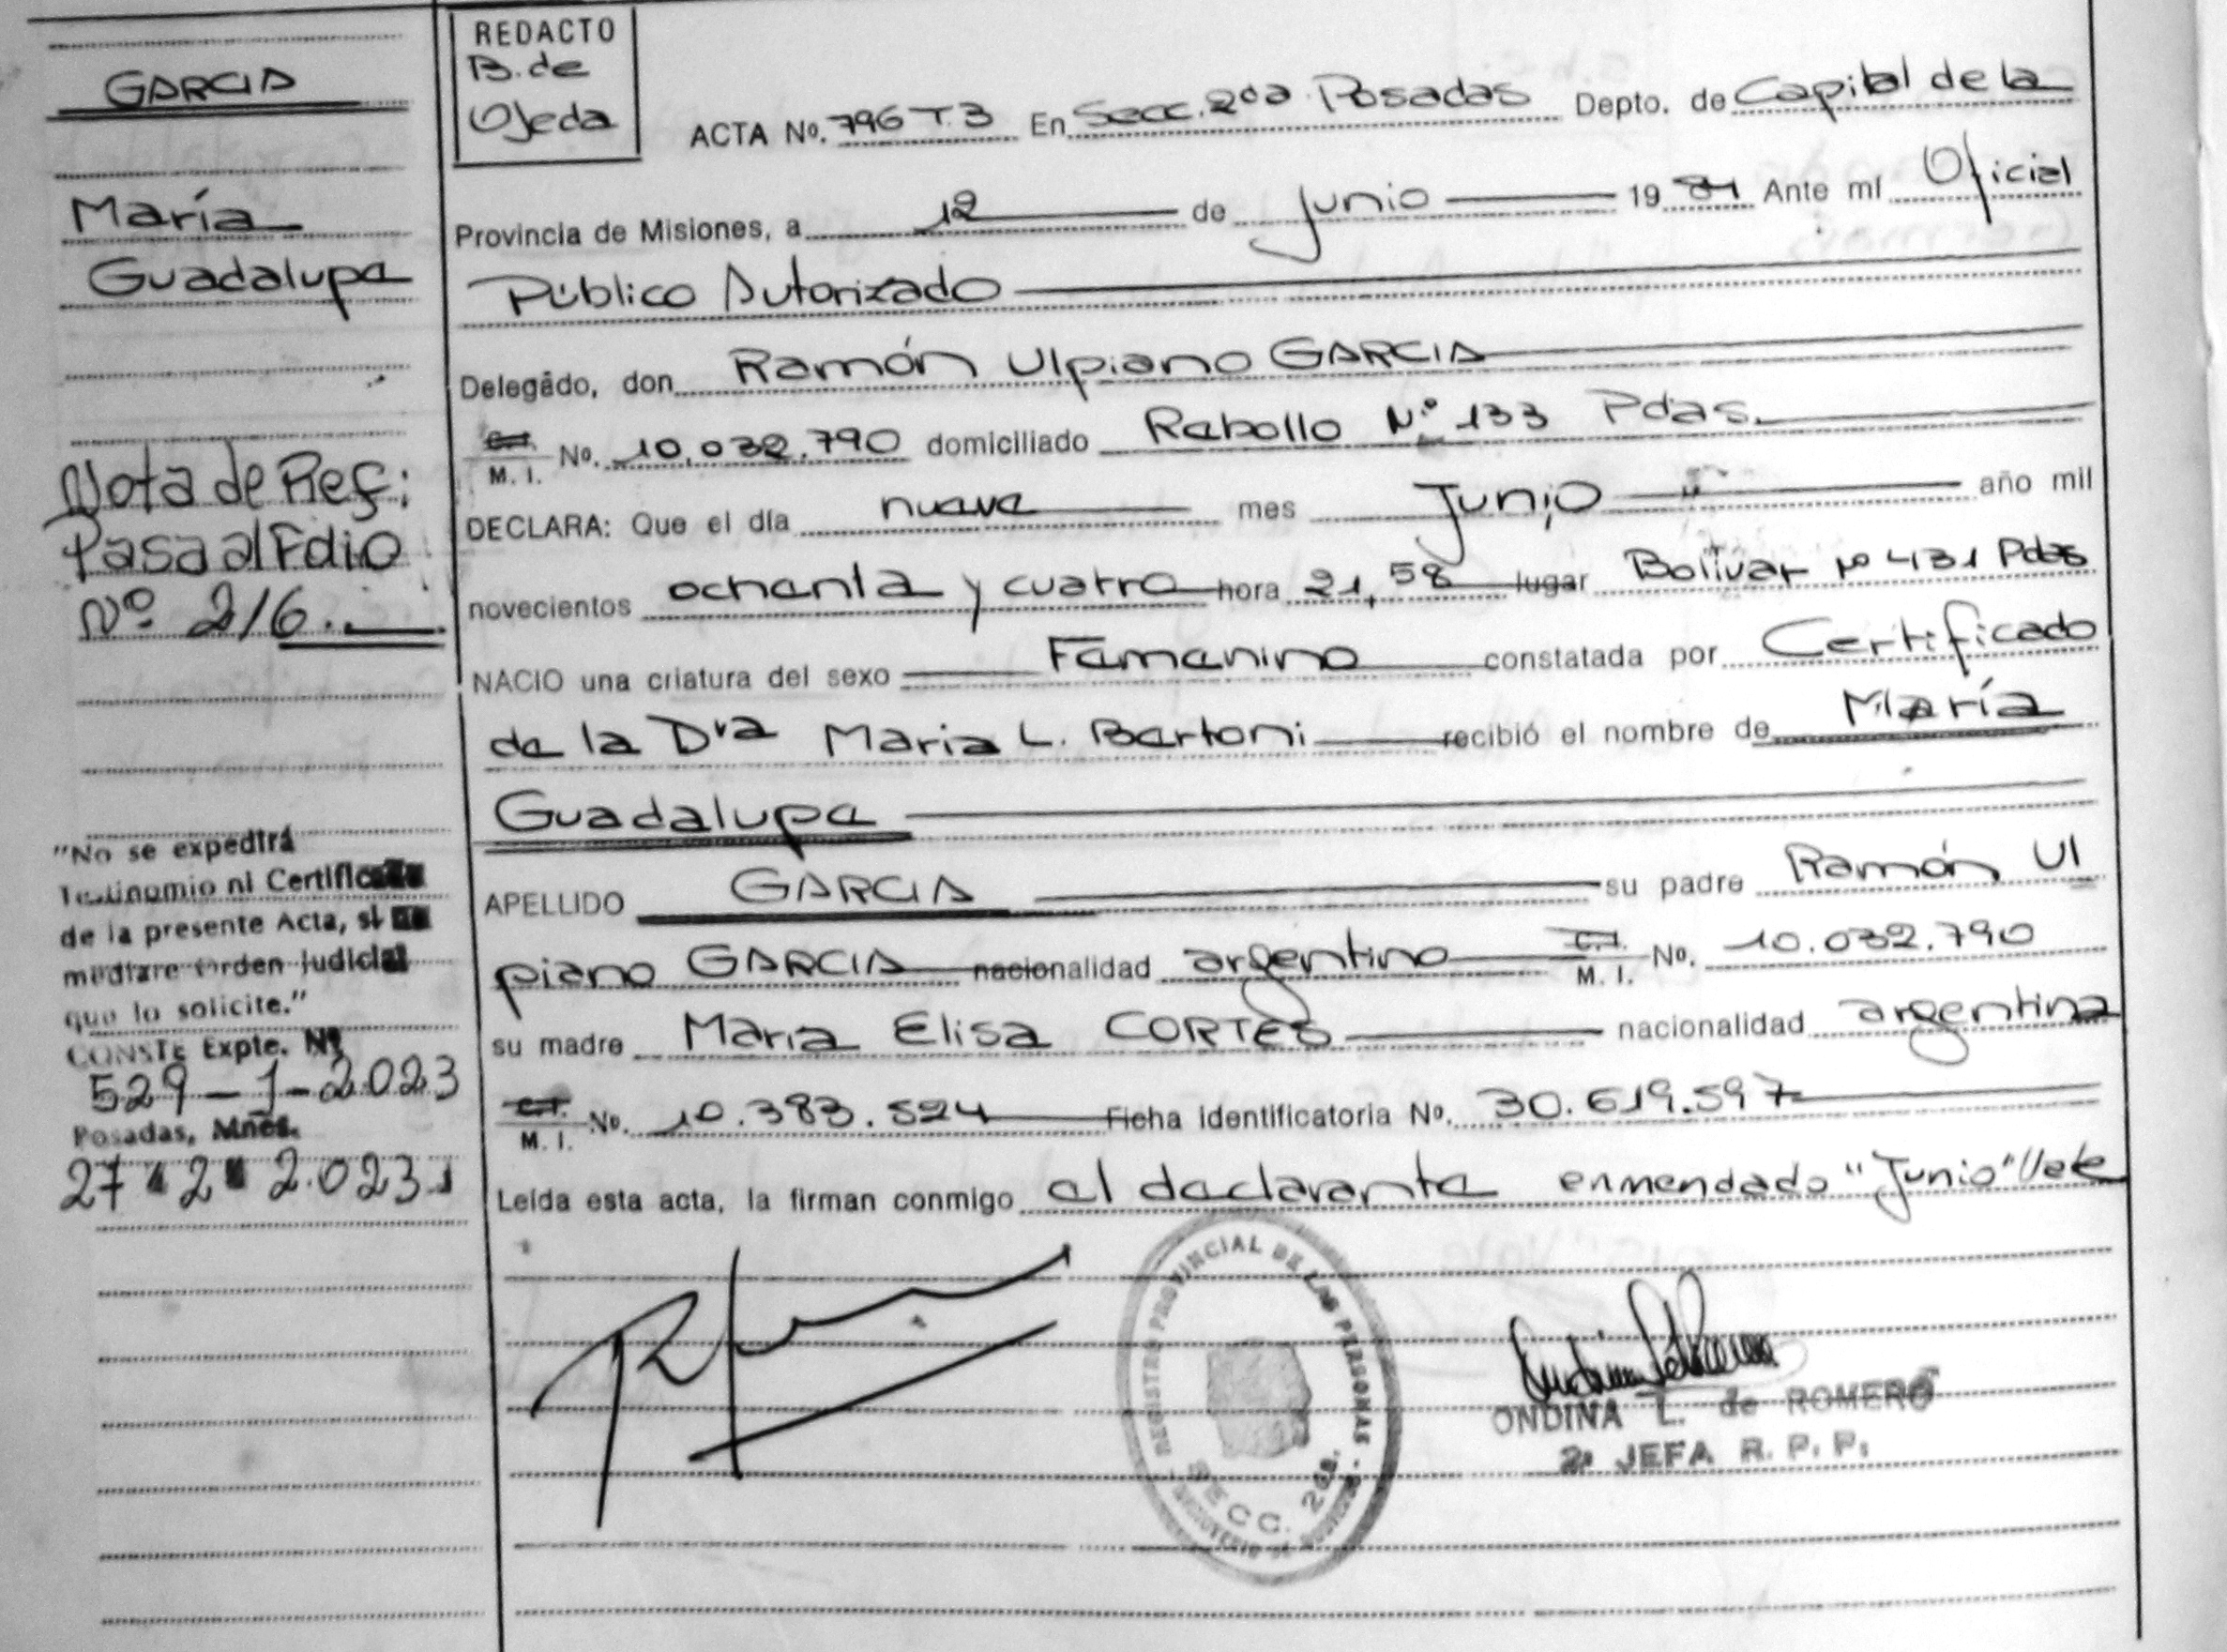 GARCIA
María
Guadalupe
Nota de Ref:
Pasa al Folio
Nº 216.
"No se expedirá
Testimonio ni Certificado
de la presente Acta, si no
mediare Orden judicial
que lo solicite."
CONSTE Expte. Nº
529-1-2023
Posadas, Mnes.
27 2 2.023
REDACTO
B. de
Ojeda
ACTA No. 796 T.3 En Secc. 2da Posadas Depto. de Capital de la
Provincia de Misiones, a 12 de Junio 19 84 Ante mí Oficial
Público Autorizado
Delegado, don Ramón Ulpiano GARCIA
C.I. M. I. No. 10.032.790 domiciliado Rebollo Nº 133 Pdas.
DECLARA: Que el día nueve mes Junio año mil
novecientos ochenta y cuatro hora 21,58 lugar Bolívar Nº 431 Pdas
NACIO una criatura del sexo Femenino constatada por Certificado
de la Dra Maria L. Bertoni recibió el nombre de María
Guadalupe
APELLIDO GARCIA su padre Ramón Ul
piano GARCIA nacionalidad argentino C.I. M. I. No. 10.032.790
su madre Maria Elisa CORTES nacionalidad argentina
C.I. M. I. No. 10.383.524 Ficha identificatoria No. 30.619.597
Leída esta acta, la firman conmigo el declarante enmendado "Junio" Vale
REGISTRO PROVINCIAL DE LAS PERSONAS
SECC. 2da.
ONDINA L. de ROMERO
2ª JEFA R. P. P.